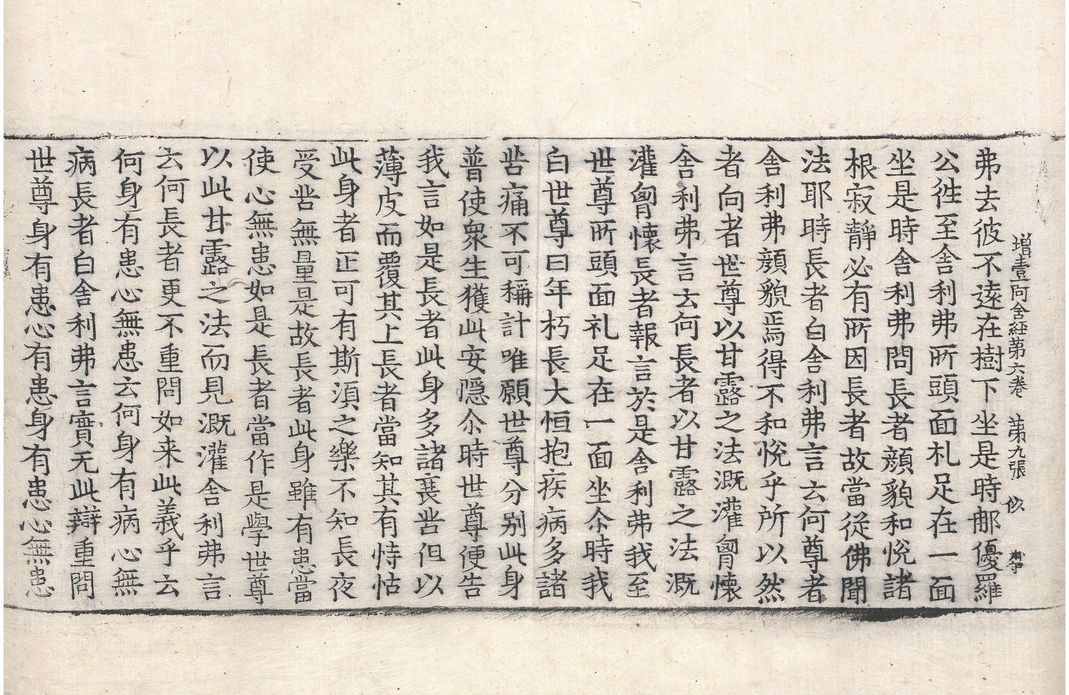 增壹阿含經第六卷 第九張 似
弗去彼不遠在樹下坐是時那優羅
公往至舍利弗所頭面礼足在一面
坐是時舍利弗問長者顏貌和悅諸
根寂靜必有所因長者故當從佛聞
法耶時長者白舍利弗言云何尊者
舍利弗顏貌焉得不和悅乎所以然
者向者世尊以甘露之法溉灌胷懷
舍利弗言云何長者以甘露之法溉
灌胷懷長者報言於是舍利弗我至
世尊所頭面礼足在一面坐尒時我
白世尊曰年朽長大恒抱疾病多諸
苦痛不可稱計唯願世尊分别此身
普使衆生獲此安隱尒時世尊便告
我言如是長者此身多諸畏苦但以
薄皮而覆其上長者當知其有恃怙
此身者正可有斯須之樂不知長夜
受苦無量是故長者此身雖有患當
使心無患如是長者當作是學世尊
以此甘露之法而見溉灌舍利弗言
云何長者更不重問如来此義乎云
何身有患心無患云何身有病心無
病長者白舍利弗言實无此辯重問
世尊身有患心有患身有患心無患